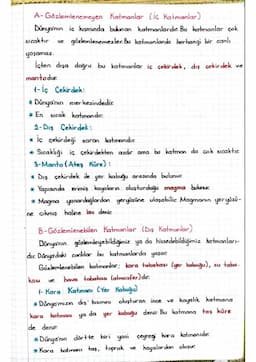 A- Gözlemlenemeyen Katmanlar (İç Katmanlar)
Dünya'nın iç kısmında bulunan katmanlardır. Bu katmanlar çok
sıcaktır ve gözlemlenemezler. Bu katmanlarda herhangi bir canlı
yaşamaz.
İçten dışa doğru bu katmanlar iç çekirdek, dış çekirdek ve
mantodur.
1- İç Çekirdek:
* Dünya'nın merkezindedir.
* En sıcak katmandır.
2- Dış Çekirdek:
* İç çekirdeği saran katmandır.
* Sıcaklığı iç çekirdekten azdır ama bu katman da çok sıcaktır.
3- Manto (Ateş Küre):
* Dış çekirdek ile yer kabuğu arasında bulunur.
* Yapısında erimiş kayaların oluşturduğu magma bulunur.
* Magma yanardağlardan yeryüzüne ulaşabilir. Magmanın yeryüzü-
ne çıkmış haline lav denir.
B- Gözlemlenebilen Katmanlar (Dış Katmanlar)
Dünya'nın gözlemleyebildiğimiz ya da hissedebildiğimiz katmanları-
dır. Dünyadaki canlılar bu katmanlarda yaşar.
Gözlemlenebilen katmanlar; kara tabakası (yer kabuğu), su taba-
kası ve hava tabakası (atmosfer)dır.
1- Kara Katmanı (Yer Kabuğu)
* Dünyamızın dış kısmını oluşturan ince ve kayalık katmana
kara katmanı ya da yer kabuğu denir. Bu katmana taş küre
de denir.
* Dünya'nın dörtte biri yani çeyreği kara katmanıdır.
* Kara katmanı taş, toprak ve kayalardan oluşur.